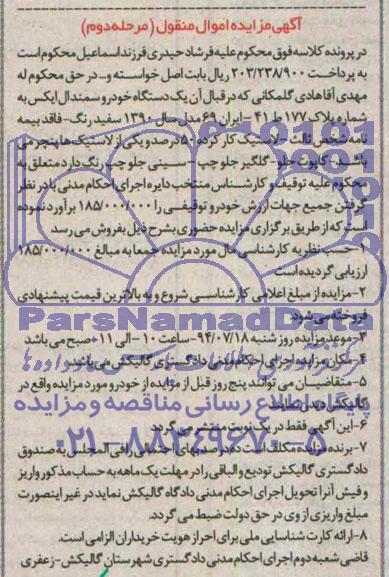 آگهی مزایده اموال منقول (مرحله دوم)
در پرونده کلاسه فوق محکوم علیه فرشاد حیدری فرزند اسماعیل محکوم است
به پرداخت ۲۰۳/۲۳۸/۹۰۰ ریال بابت اصل خواسته و... در حق محکوم له
مهدی آقاهادی گلمکانی که در قبال آن یک دستگاه خودرو سمند ال ایکس به
شماره پلاک ۱۷۷ ط ۴۱ - ایران ۶۹ مدل سال ۱۳۹۰ سفید رنگ - فاقد بیمه
نامه شخص ثالث - لاستیک کار کرده ۵۰ درصد و یکی از لاستیک ها پنجر می
باشد - کاپوت جلو - گلگیر جلو چپ - سینی جلو چپ رنگ دارد متعلق به
محکوم علیه توقیف و کارشناس منتخب دایره اجرای احکام مدنی با در نظر
گرفتن جمیع جهات ارزش خودرو توقیفی را ۱۸۵/۰۰۰/۰۰۰ برآورد نموده
است که از طریق برگزاری مزایده حضوری بشرح ذیل بفروش می رسد
۱- حسب نظریه کارشناسی مال مورد مزایده جمعا به مبلغ ۱۸۵/۰۰۰/۰۰۰
ارزیابی گردیده است
۲- مزایده از مبلغ اعلامی کارشناسی شروع و به بالاترین قیمت پیشنهادی
فروخته می شود
۳- موعد مزایده روز شنبه ۹۴/۰۷/۱۸ - ساعت ۱۰ الی ۱۱ صبح می باشد
۴- مکان مزایده اجرای احکام مدنی دادگستری گالیکش می باشد
۵- متقاضیان می توانند پنج روز قبل از مزایده از خودرو مورد مزایده واقع در
گالیکش دیدن نمایند
۶- این آگهی فقط در یک نوبت منتشر می گردد
۷- برنده مزایده مکلف است ده درصد بهای احتمالی را فی المجلس به صندوق
دادگستری گالیکش تودیع و الباقی را در مهلت یک ماهه به حساب مذکور واریز
و فیش آنرا تحویل اجرای احکام مدنی دادگاه گالیکش نماید در غیر اینصورت
مبلغ واریزی از وی در حق دولت ضبط می گردد
۸- ارائه کارت شناسایی ملی برای احراز هویت خریداران الزامی است.
قاضی شعبه دوم اجرای احکام مدنی دادگستری شهرستان گالیکش - زعفری
ParsNamadData
پایگاه اطلاع رسانی مناقصه و مزایده
۰۲۱-۸۸۳۴۹۶۷۰-۵